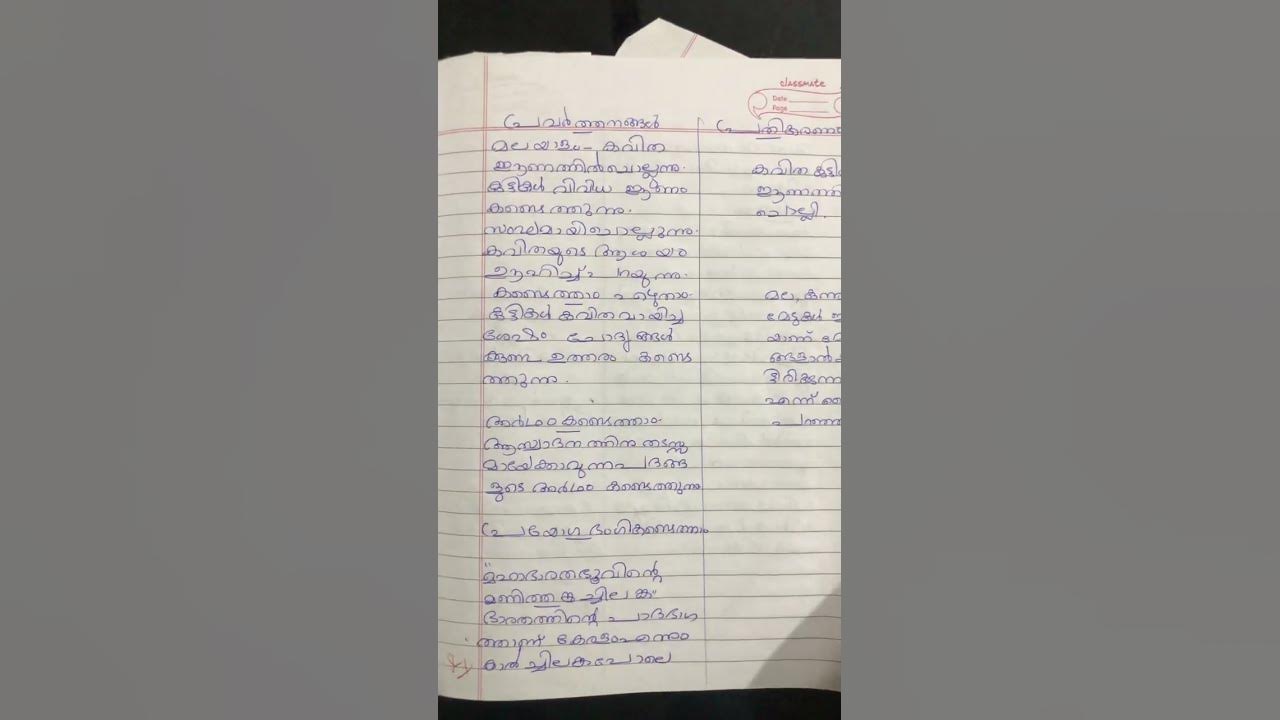 classmate
Date
Page
പ്രവർത്തനങ്ങൾ
മലയാളം - കവിത
ഈണത്തിൽ ചൊല്ലുന്നു.
കുട്ടികൾ വിവിധ ഈണം
കണ്ടെത്തുന്നു.
സംഘമായി ചൊല്ലുന്നു.
കവിതയുടെ ആശയം
ഊഹിച്ച് പറയുന്നു.
കണ്ടെത്താം എഴുതാം
കുട്ടികൾ കവിത വായിച്ച
ശേഷം ചോദ്യങ്ങൾ
ക്കുണ്ട ഉത്തരം കണ്ടെ
ത്തുന്നു.
അർഥം കണ്ടെത്താം
ആസ്വാദനത്തിനു തടസ്സ
മായേക്കാവുന്ന പദങ്ങ
ളുടെ അർഥം കണ്ടെത്തുന്നു
പ്രയോഗഭംഗി കണ്ടെത്താം
"മഹാഭാരതഭൂവിന്റെ
മണിത്തങ്കച്ചിലങ്ക
ഭാരതത്തിന്റെ പാദഭാഗ
ത്താണ് കേരളം എന്നും
കാൽച്ചിലങ്കപോലെ
കവിത കുട്ടി
ഈണത്തി
ചൊല്ലി.
മല, കുന്ന
മേടുകൾ
യാണ്
എന്ന്